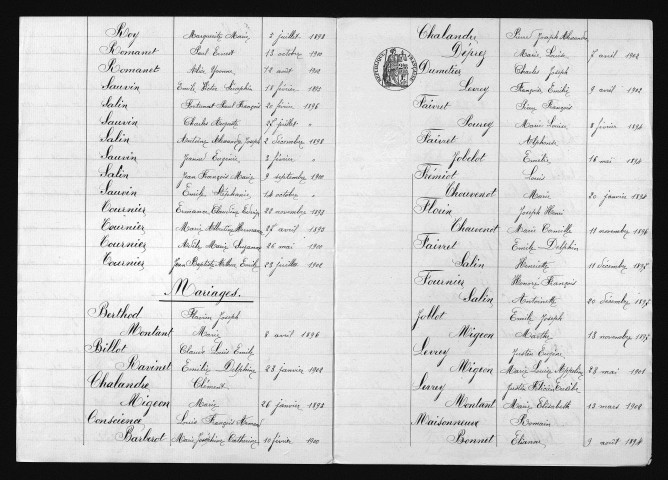 Roy Marguerite Marie 2 juillet 1898
Romanet Paul Ernest 13 octobre 1900
Romanet Alix Yvonne 12 août 1902
Sauvin Emile Victor Séraphin 18 février 1893
Salin Fortunat Paul François 20 février 1896
Sauvin Charles Auguste 25 juillet "
Salin Antoine Alexandre Joseph 2 décembre 1898
Sauvin Jeanne Eugénie 3 février "
Salin Jean François Marie 9 septembre 1900
Sauvin Emile Stéphanie 14 octobre "
Tournier Ermance Claudine 22 novembre 1893
Tournier Marie Albertine 25 avril 1895
Tournier Marie Suzanne 26 mai 1900
Tournier Jean Baptiste Arthur Emile 23 juillet 1902
Mariages.
Berthod Flavien Joseph
Montant Marie 8 avril 1896
Billot Claude Louis Emile
Ravinet Emilie Delphine 23 janvier 1902
Chalandre Clément
Migeon Marie 26 janvier 1893
Conscience Louis François
Barberot Marie Joséphine Catherine 10 février 1900
Chalandre Pierre Joseph Alexandre
Déprez Marie Louise 7 avril 1902
RÉPUBLIQUE FRANÇAISE
Dumotier Charles Joseph
Levrey Françoise Emilie 9 avril 1902
Faivret François
Pourey Marie Louise 8 février 1894
Faivret Alphonse
Jobelot Emilie 16 mai 1894
Fréniot Louis
Chauvenot Marie 20 janvier 1894
Florin Joseph Henri
Chauvenot Marie Camille 11 novembre 1896
Faivret Emile Delphin
Salin Henriette 11 décembre 1895
Fournier Honoré François
Salin Antoinette 20 décembre 1895
Jollot Emile Joseph
Migeon Marthe 13 novembre 1897
Levrey Justin Eugène
Migeon Marie Louise Appoline 28 mai 1901
Levrey Justin
Montant Marie Elisabeth 12 mars 1902
Maisonneux Romain
Bonnet Eléonor 9 août 1894